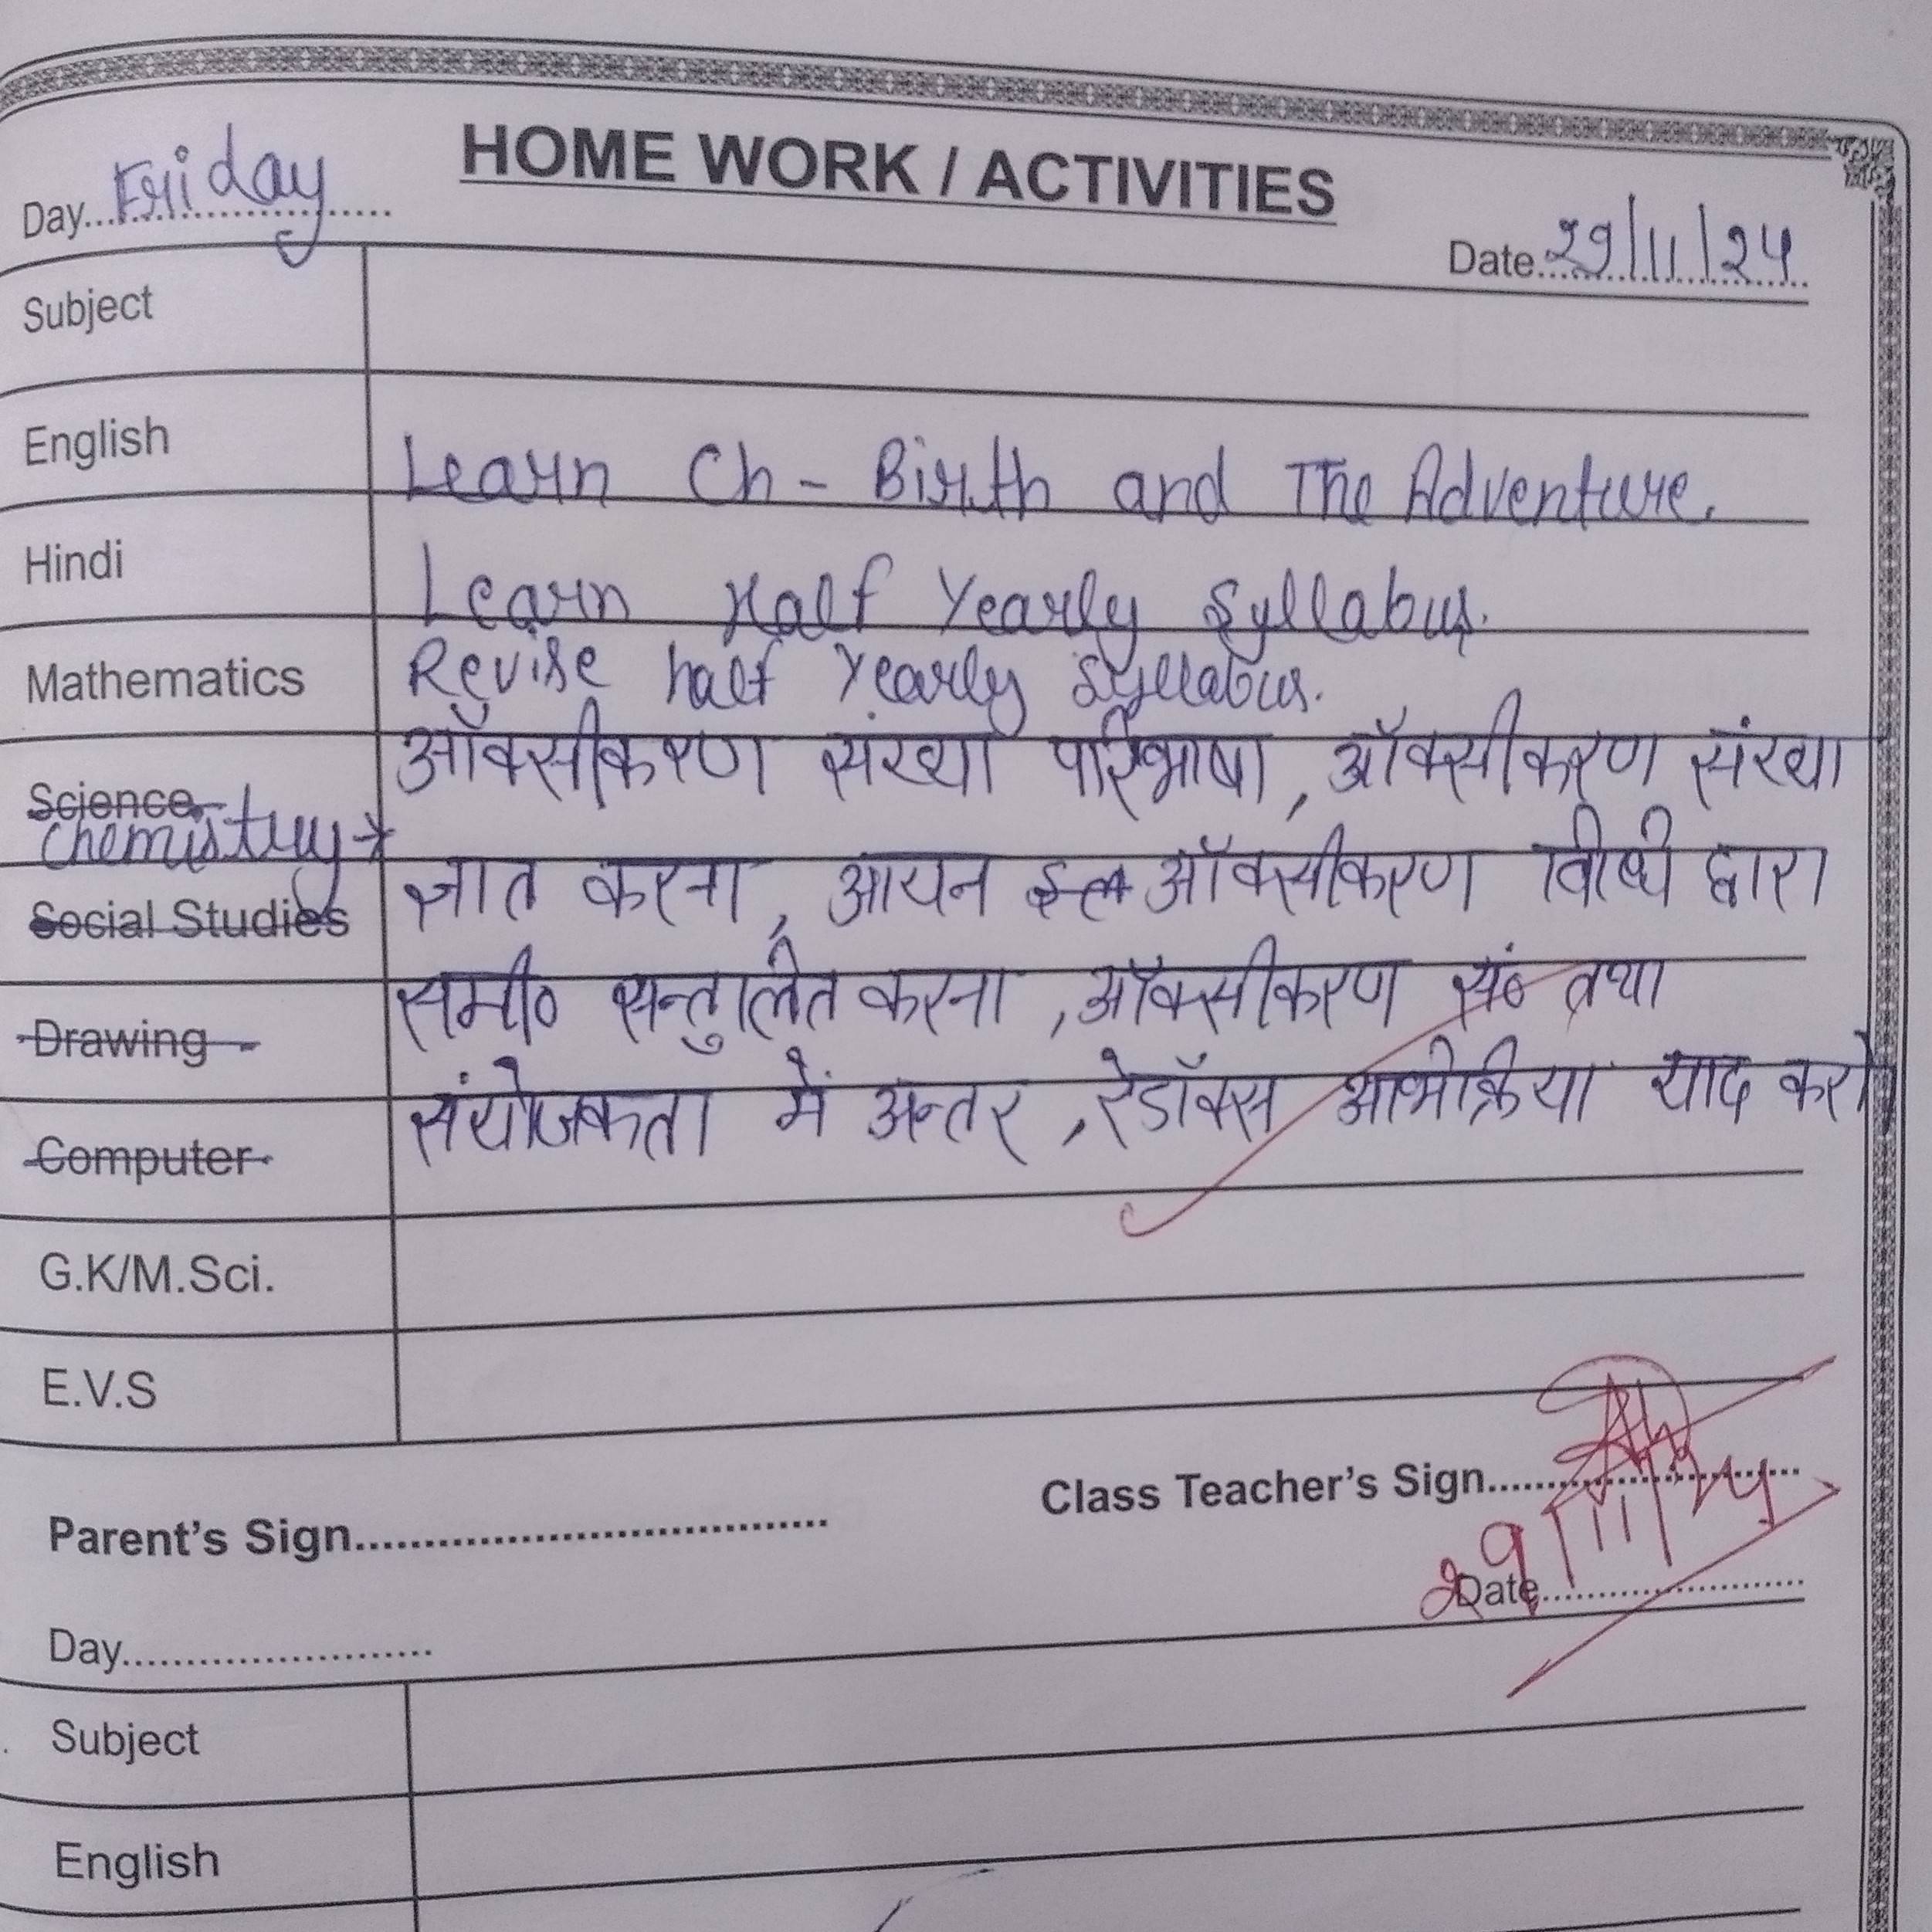 HOME WORK / ACTIVITIES
Day Friday
Date 29/11/24
Subject
English Learn Ch - Birth and The Adventure.
Hindi Learn Half Yearly Syllabus.
Mathematics Revise half Yearly Syllabus.
Science ऑक्सीकरण संख्या परिभाषा, ऑक्सीकरण संख्या
Chemistry →
Social Studies ज्ञात करना, आयन ऑक्सीकरण विधि द्वारा
Drawing समी० सन्तुलित करना, ऑक्सीकरण सं० तथा
Computer संयोजकता में अन्तर, रेडॉक्स अभिक्रिया याद करो
G.K/M.Sci.
E.V.S
Class Teacher's Sign
Parent's Sign
29/11/24
Date
Day
Subject
English